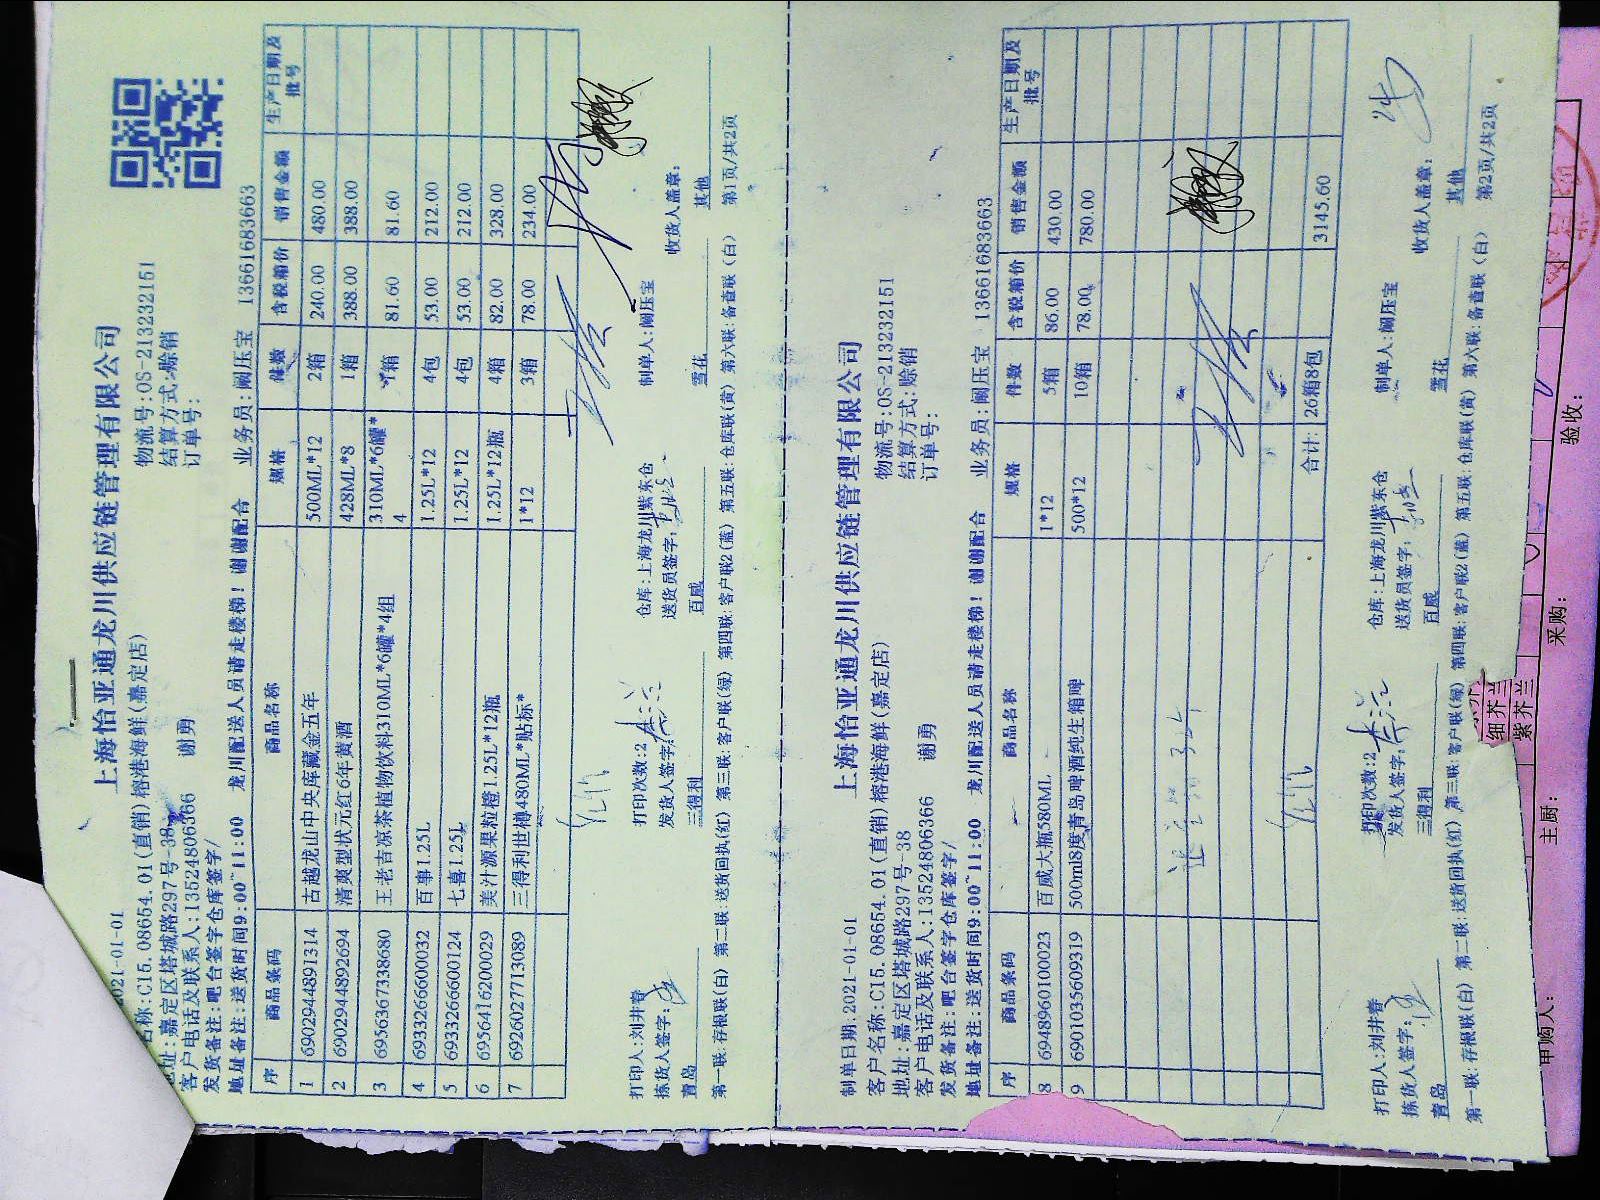 上海怡亚通龙川供应链管理有限公司
2021-01-01
物流号:OS-213232151
名称:C15.08654.01(直销)榕港海鲜(嘉定店)
结算方式:赊销
地址:嘉定区塔城路297号-38
订单号:
客户电话及联系人:13524806366 谢勇
发货备注:吧台签字仓库签字/
地址备注:送货时间9:00~11:00 龙川配送人员请走楼梯!谢谢配合 业务员:阚压宝 13661683663
序 商品条码 商品名称 规格 件数 含税箱价 销售金额 生产日期及批号
1 6902944891314 古越龙山中央库藏金五年 500ML*12 2箱 240.00 480.00
2 6902944892694 清爽型状元红6年黄酒 428ML*8 1箱 388.00 388.00
3 6956367338680 王老吉凉茶植物饮料310ML*6罐*4组 310ML*6罐*4 1箱 81.60 81.60
4 6933266600032 百事1.25L 1.25L*12 4包 53.00 212.00
5 6933266600124 七喜1.25L 1.25L*12 4包 53.00 212.00
6 6956416200029 美汁源果粒橙1.25L*12瓶 1.25L*12瓶 4箱 82.00 328.00
7 6926027713089 三得利世樽480ML*贴标* 1*12 3箱 78.00 234.00
打印人:刘井春 打印次数:2 仓库:上海龙川紫东仓 制单人:阚压宝 收货人盖章:
拣货人签字: 发货人签字: 送货员签字:
青岛 三得利 百威 雪花 其他
第一联:存根联(白) 第二联:送货回执(红) 第三联:客户联(绿) 第四联:客户联2(蓝) 第五联:仓库联(黄) 第六联:备查联(白) 第1页/共2页
上海怡亚通龙川供应链管理有限公司
制单日期:2021-01-01
物流号:OS-213232151
客户名称:C15.08654.01(直销)榕港海鲜(嘉定店)
结算方式:赊销
地址:嘉定区塔城路297号-38
订单号:
客户电话及联系人:13524806366 谢勇
发货备注:吧台签字仓库签字/
地址备注:送货时间9:00~11:00 龙川配送人员请走楼梯!谢谢配合 业务员:阚压宝 13661683663
序 商品条码 商品名称 规格 件数 含税箱价 销售金额 生产日期及批号
8 6948960100023 百威大瓶580ML 1*12 5箱 86.00 430.00
9 6901035609319 500ml8度青岛啤酒纯生箱啤 500*12 10箱 78.00 780.00
合计: 26箱8包 3145.60
打印人:刘井春 打印次数:2 仓库:上海龙川紫东仓 制单人:阚压宝 收货人盖章:
拣货人签字: 发货人签字: 送货员签字:
青岛 三得利 百威 雪花 其他
第一联:存根联(白) 第二联:送货回执(红) 第三联:客户联(绿) 第四联:客户联2(蓝) 第五联:仓库联(黄) 第六联:备查联(白) 第2页/共2页
细芥兰
紫芥兰
申购人: 主厨: 采购: 验收: